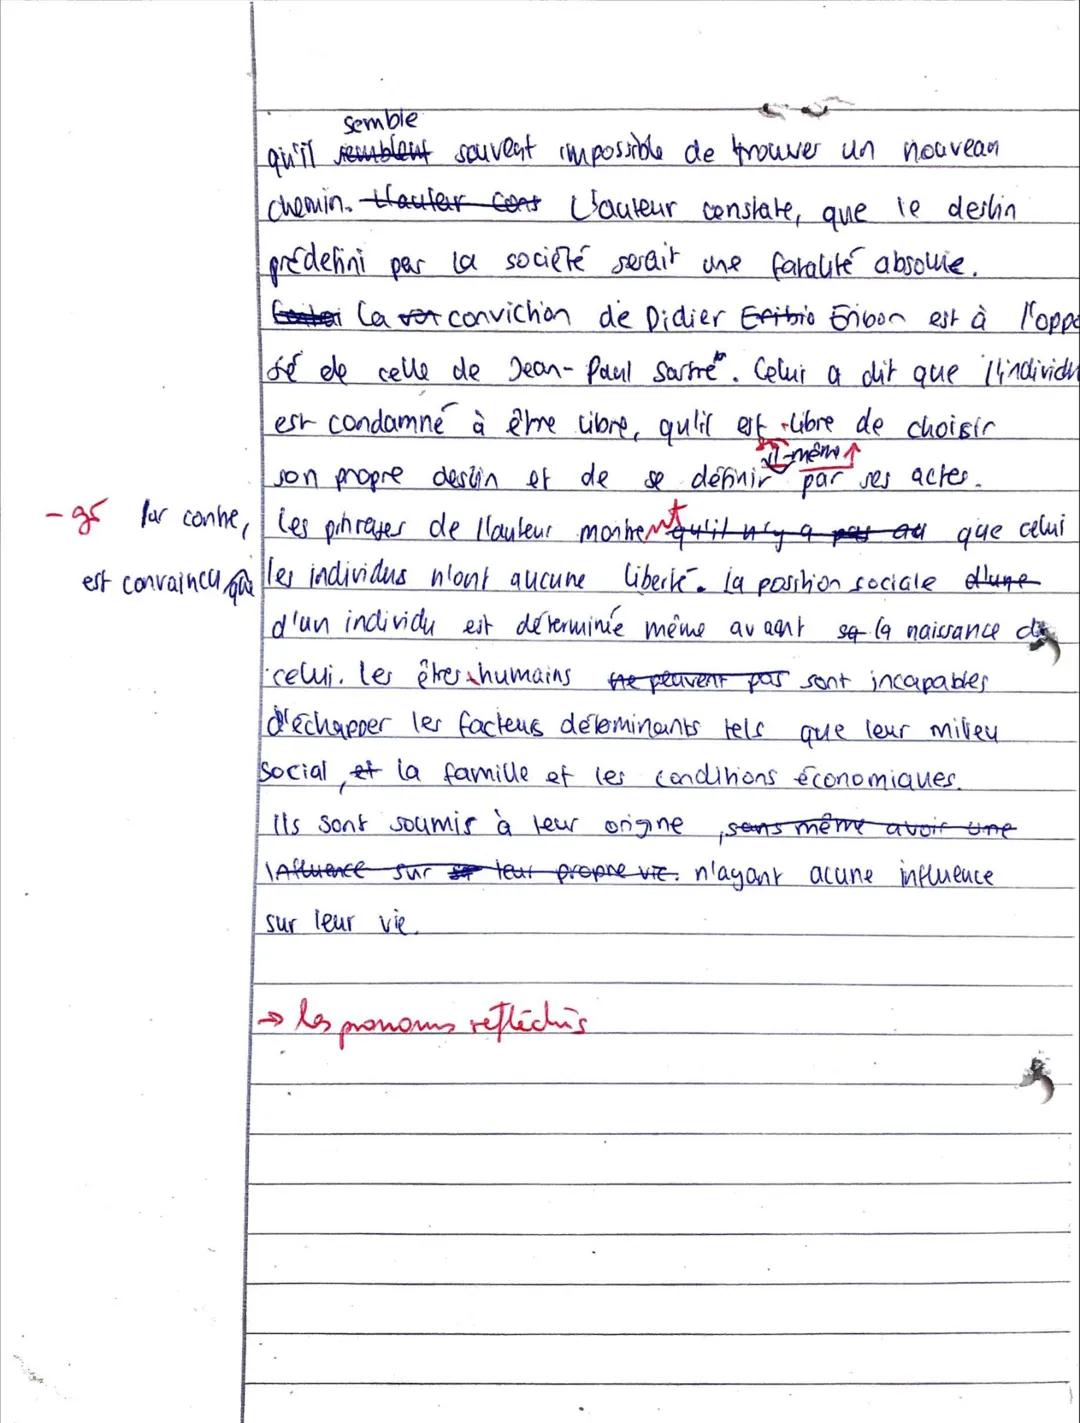 semble
qu'il semblent souvent impossible de trouver un nouveau
chemin. L'auteur cons L'auteur constate, que le destin
prédefini par la société serait une fatalité absolue.
La conviction de Didier Eribon est à l'oppo
sé de celle de Jean-Paul Sartre. Celui a dit que l'individu
est condamné à être libre, qu'il est libre de choisir
-même
son propre destin et de se définir par ses actes.
- gr Par contre, les phrases de l'auteur montrent qu'il n'y a pas que celui
est convaincu que les individus n'ont aucune liberté. La position sociale d'une
d'un individu est déterminée même avant sa la naissance de
celui. Les êtres humains ne peuvent pas sont incapables
d'échapper les facteurs déterminants tels que leur milieu
social, et la famille et les conditions économiques.
Ils sont soumis à leur origine, sans même avoir une
influence sur leur propre vie. n'ayant acune influence
sur leur vie.
→ les pronoms réfléchis